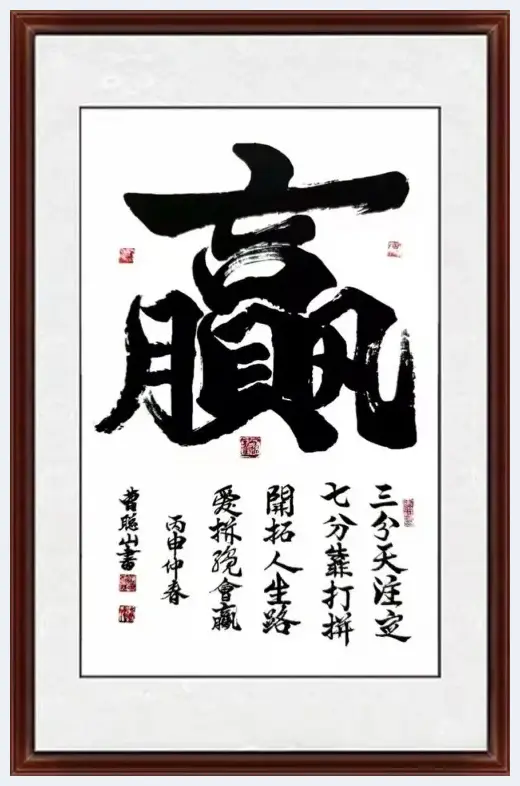 贏
三分天注定
七分靠打拼
開拓人生路
愛拼總會贏
丙申仲春
曹聪山書